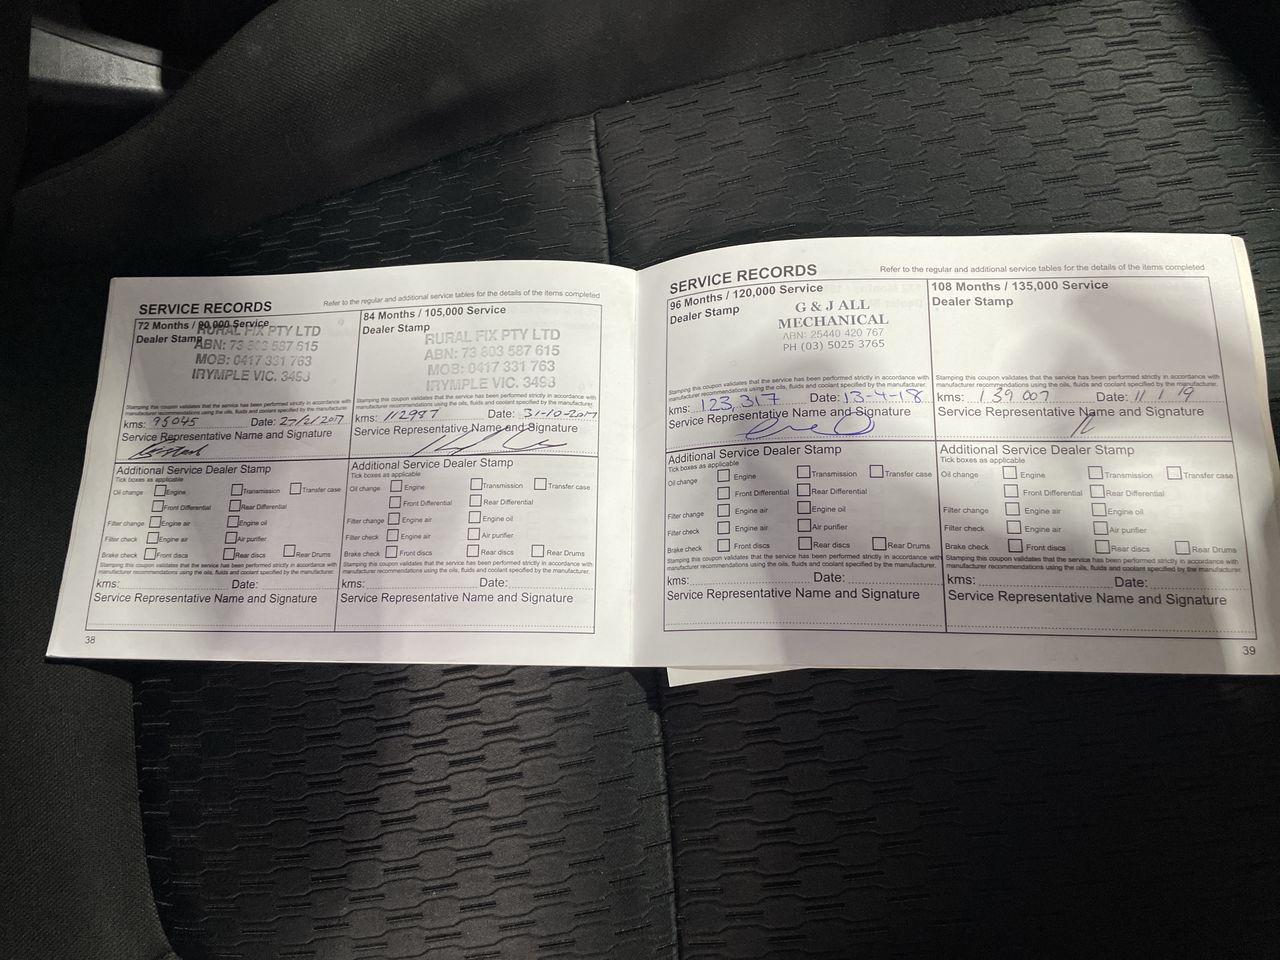 SERVICE RECORDS
Refer to the regular and additional service tables for the details of the items completed
72 Months / 90,000 Service
Dealer Stamp
RURAL FIX PTY LTD
ABN: 73 603 587 615
MOB: 0417 331 763
IRYMPLE VIC. 3498
Stamping this coupon validates that the service has been performed strictly in accordance with
manufacturer recommendations using the oils, fluids and coolant specified by the manufacturer.
kms: 95045 Date: 27/2/2017
Service Representative Name and Signature
Additional Service Dealer Stamp
Tick boxes as applicable
Oil change Engine Transmission Transfer case
Front Differential Rear Differential
Filter change Engine air Engine oil
Filter check Engine air Air purifier
Brake check Front discs Rear discs Rear Drums
Stamping this coupon validates that the service has been performed strictly in accordance with
manufacturer recommendations using the oils, fluids and coolant specified by the manufacturer.
kms: Date:
Service Representative Name and Signature
38
84 Months / 105,000 Service
Dealer Stamp
RURAL FIX PTY LTD
ABN: 73 603 587 615
MOB: 0417 331 763
IRYMPLE VIC. 3498
Stamping this coupon validates that the service has been performed strictly in accordance with
manufacturer recommendations using the oils, fluids and coolant specified by the manufacturer.
kms: 112987 Date: 31-10-2017
Service Representative Name and Signature
Additional Service Dealer Stamp
Tick boxes as applicable
Oil change Engine Transmission Transfer case
Front Differential Rear Differential
Filter change Engine air Engine oil
Filter check Engine air Air purifier
Brake check Front discs Rear discs Rear Drums
Stamping this coupon validates that the service has been performed strictly in accordance with
manufacturer recommendations using the oils, fluids and coolant specified by the manufacturer.
kms: Date:
Service Representative Name and Signature
SERVICE RECORDS
Refer to the regular and additional service tables for the details of the items completed
96 Months / 120,000 Service
Dealer Stamp
G & J ALL
MECHANICAL
ABN: 25440 420 767
PH (03) 5025 3765
Stamping this coupon validates that the service has been performed strictly in accordance with
manufacturer recommendations using the oils, fluids and coolant specified by the manufacturer.
kms: 123,317 Date: 13-4-18
Service Representative Name and Signature
Additional Service Dealer Stamp
Tick boxes as applicable
Oil change Engine Transmission Transfer case
Front Differential Rear Differential
Filter change Engine air Engine oil
Filter check Engine air Air purifier
Brake check Front discs Rear discs Rear Drums
Stamping this coupon validates that the service has been performed strictly in accordance with
manufacturer recommendations using the oils, fluids and coolant specified by the manufacturer.
kms: Date:
Service Representative Name and Signature
108 Months / 135,000 Service
Dealer Stamp
Stamping this coupon validates that the service has been performed strictly in accordance with
manufacturer recommendations using the oils, fluids and coolant specified by the manufacturer.
kms: 139 007 Date: 11/1/19
Service Representative Name and Signature
Additional Service Dealer Stamp
Tick boxes as applicable
Oil change Engine Transmission Transfer case
Front Differential Rear Differential
Filter change Engine air Engine oil
Filter check Engine air Air purifier
Brake check Front discs Rear discs Rear Drums
Stamping this coupon validates that the service has been performed strictly in accordance with
manufacturer recommendations using the oils, fluids and coolant specified by the manufacturer.
kms: Date:
Service Representative Name and Signature
39